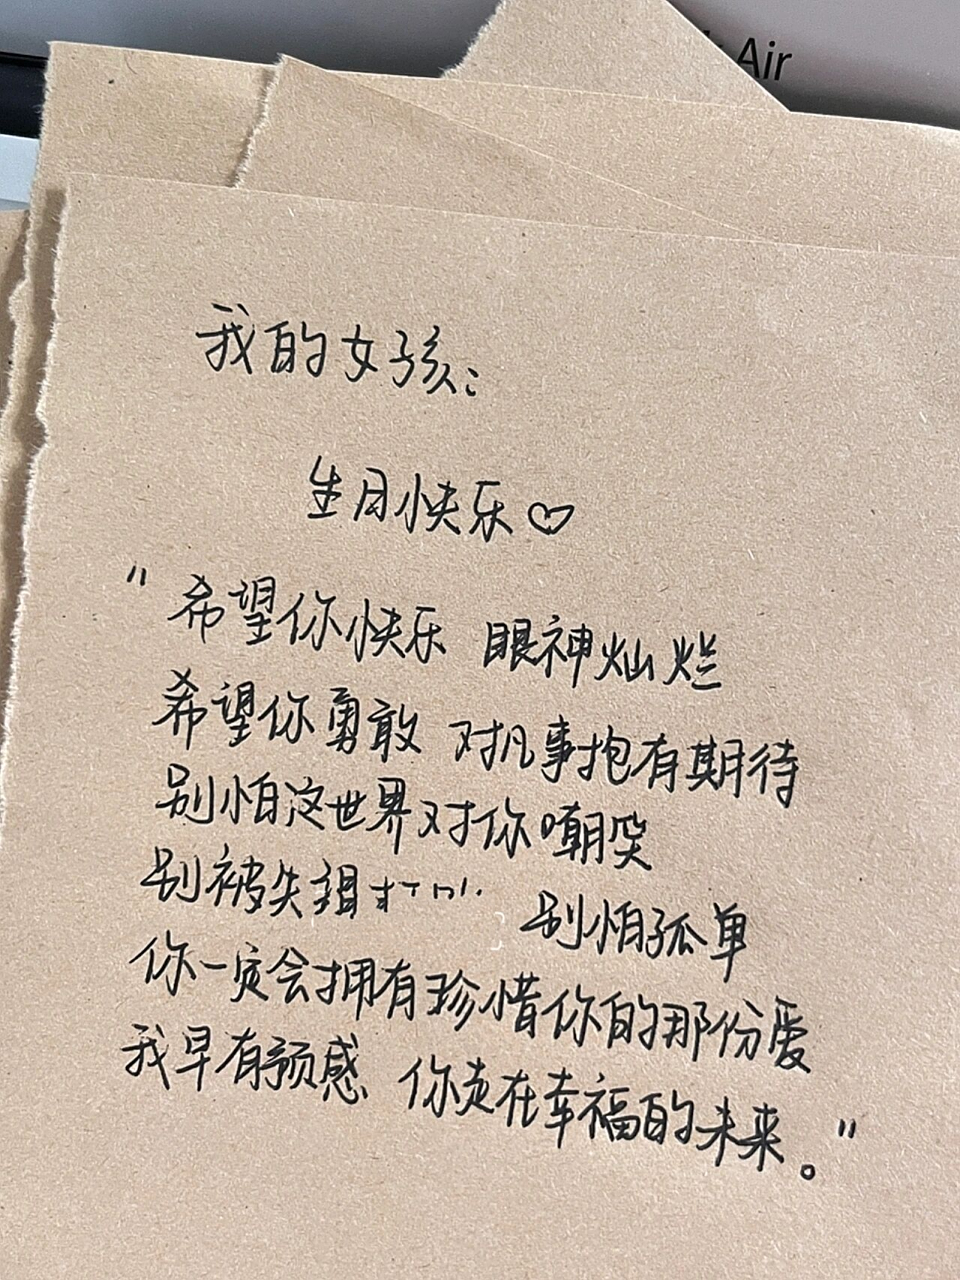 Air
我的女孩:
生日快乐♡
"希望你快乐 眼神灿烂
希望你勇敢 对凡事抱有期待
别怕这世界对你嘲笑
别被失望 别怕孤单
你一定会拥有珍惜你的那份爱
我早有预感 你走在幸福的未来。"